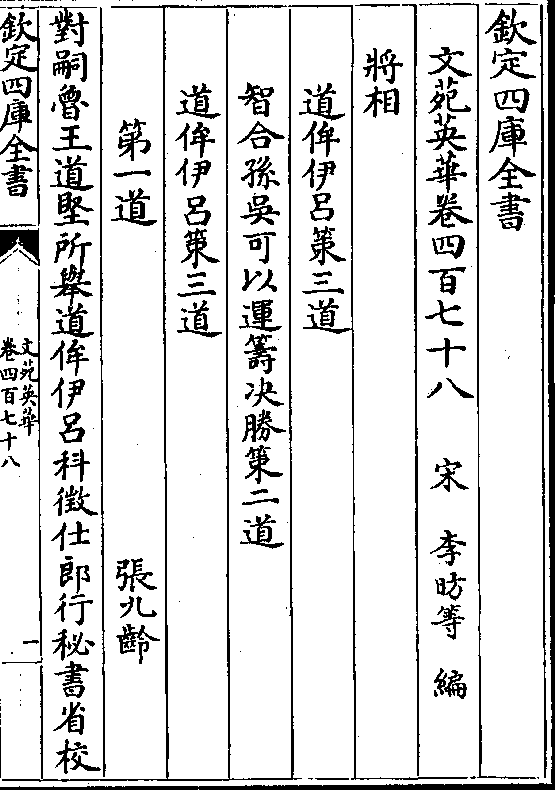 欽定四庫全書
文苑英華卷四百七十八　宋　李昉等　編
將相
道侔伊呂策三道
智合孫吳可以運籌决勝策二道
道侔伊呂策三道
第一道　張九齡
對嗣魯王道堅所舉道侔伊呂科徵仕郎行秘書省校
欽定四庫全書
文苑英華
卷四百七十八
一